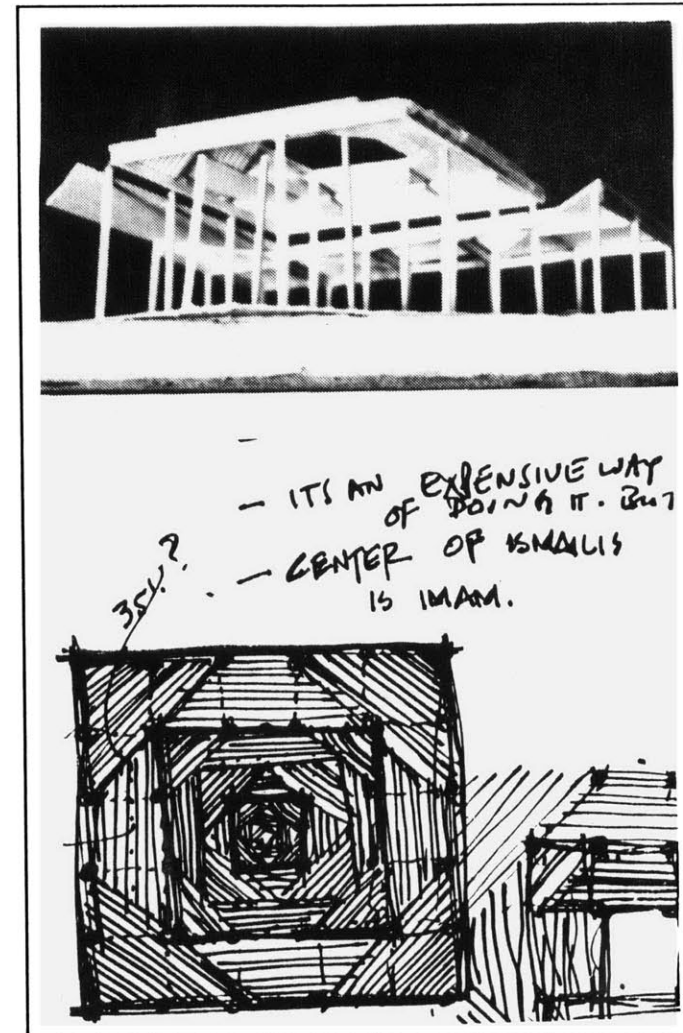 - ITS AN EXPENSIVE WAY
OF DOING IT. BUT
- CENTER OF ISMAILIS
IS IMAM.